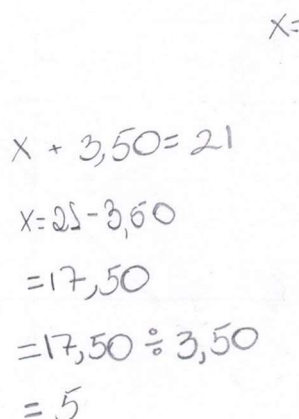 x=
x + 3,50= 21
x=21-3,50
=17,50
=17,50 ÷ 3,50
= 5